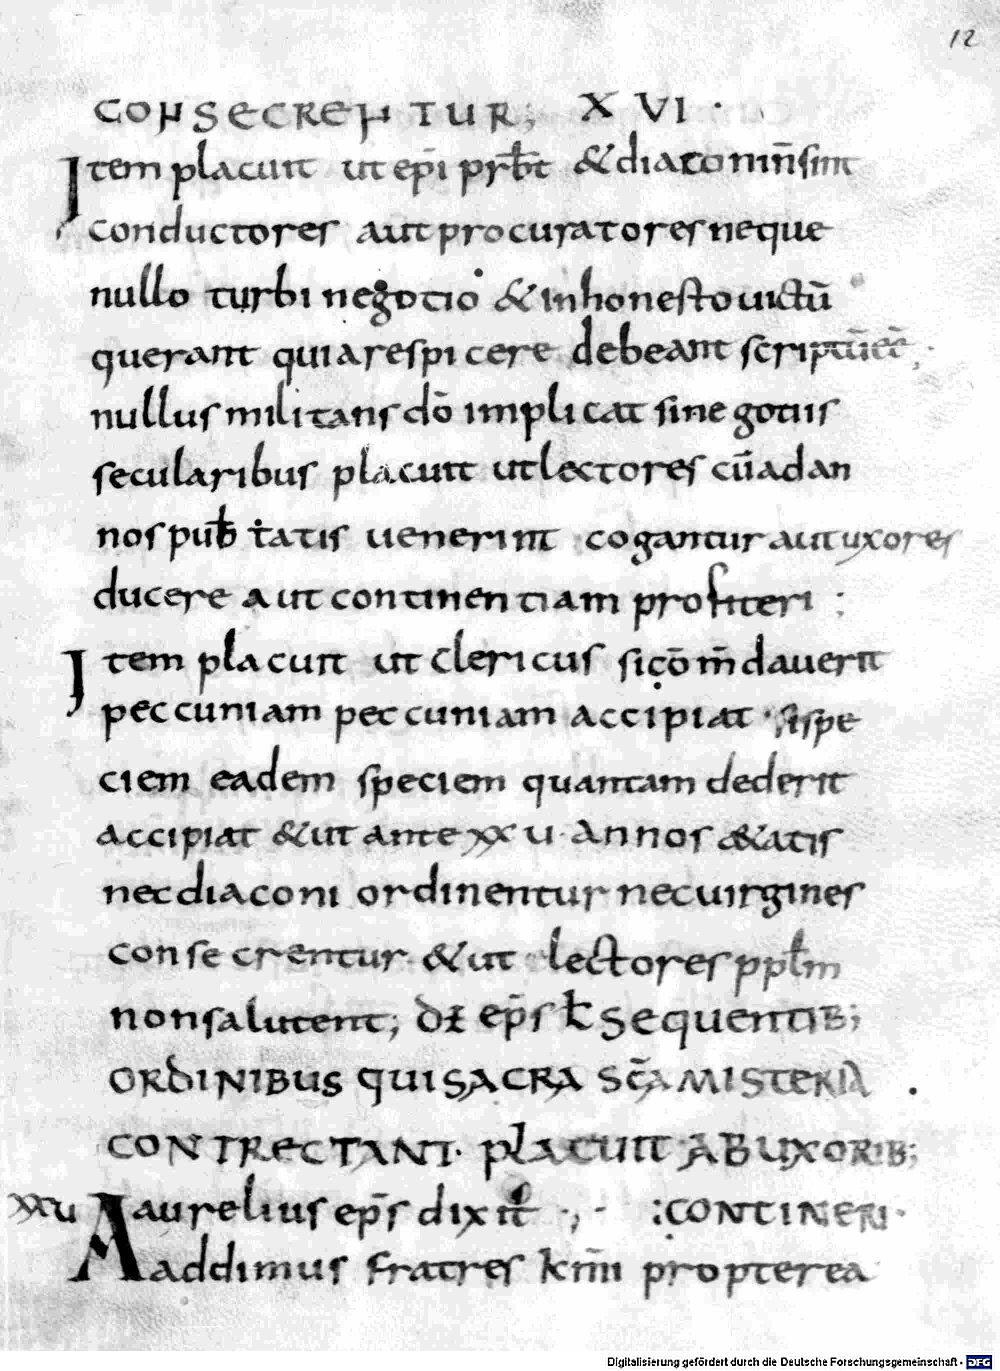 12
CONSECRENTUR; XVI ·
Item placuit ut ep̄i p̄rƀt &diaconin̄sint
conductores aut procuratores neque
nullo turbi negotio &inhonesto uictū
querant quia respicere debeant scriptūēē;
nullus militans dō implicat sine gotiis
secularibus placuit utlectores cūadan
nos puƀtatis uenerint cogantur autuxores
ducere aut continentiam profiteri :
Item placuit ut clericus sicōm̄dauerit
peccuniam peccuniam accipiat · sispe
ciem eadem speciem quantam dederit
accipiat &ut ante xxu annos &atis
necdiaconi ordinentur necuirgines
consecrentur &ut lectores pplm
nonsalutent; dɇ ep̄s ł sequentiB;
ORDINIBUS QUI SACRA SC̄A MISTERIA .
CONTRECTANT· placuit AB UXORIB;
xxu Aaurelius ep̄s dixit ·,· :CONTINERI·
addimus fratres k̄mi propterea
Digitalisierung gefördert durch die Deutsche Forschungsgemeinschaft - DFG